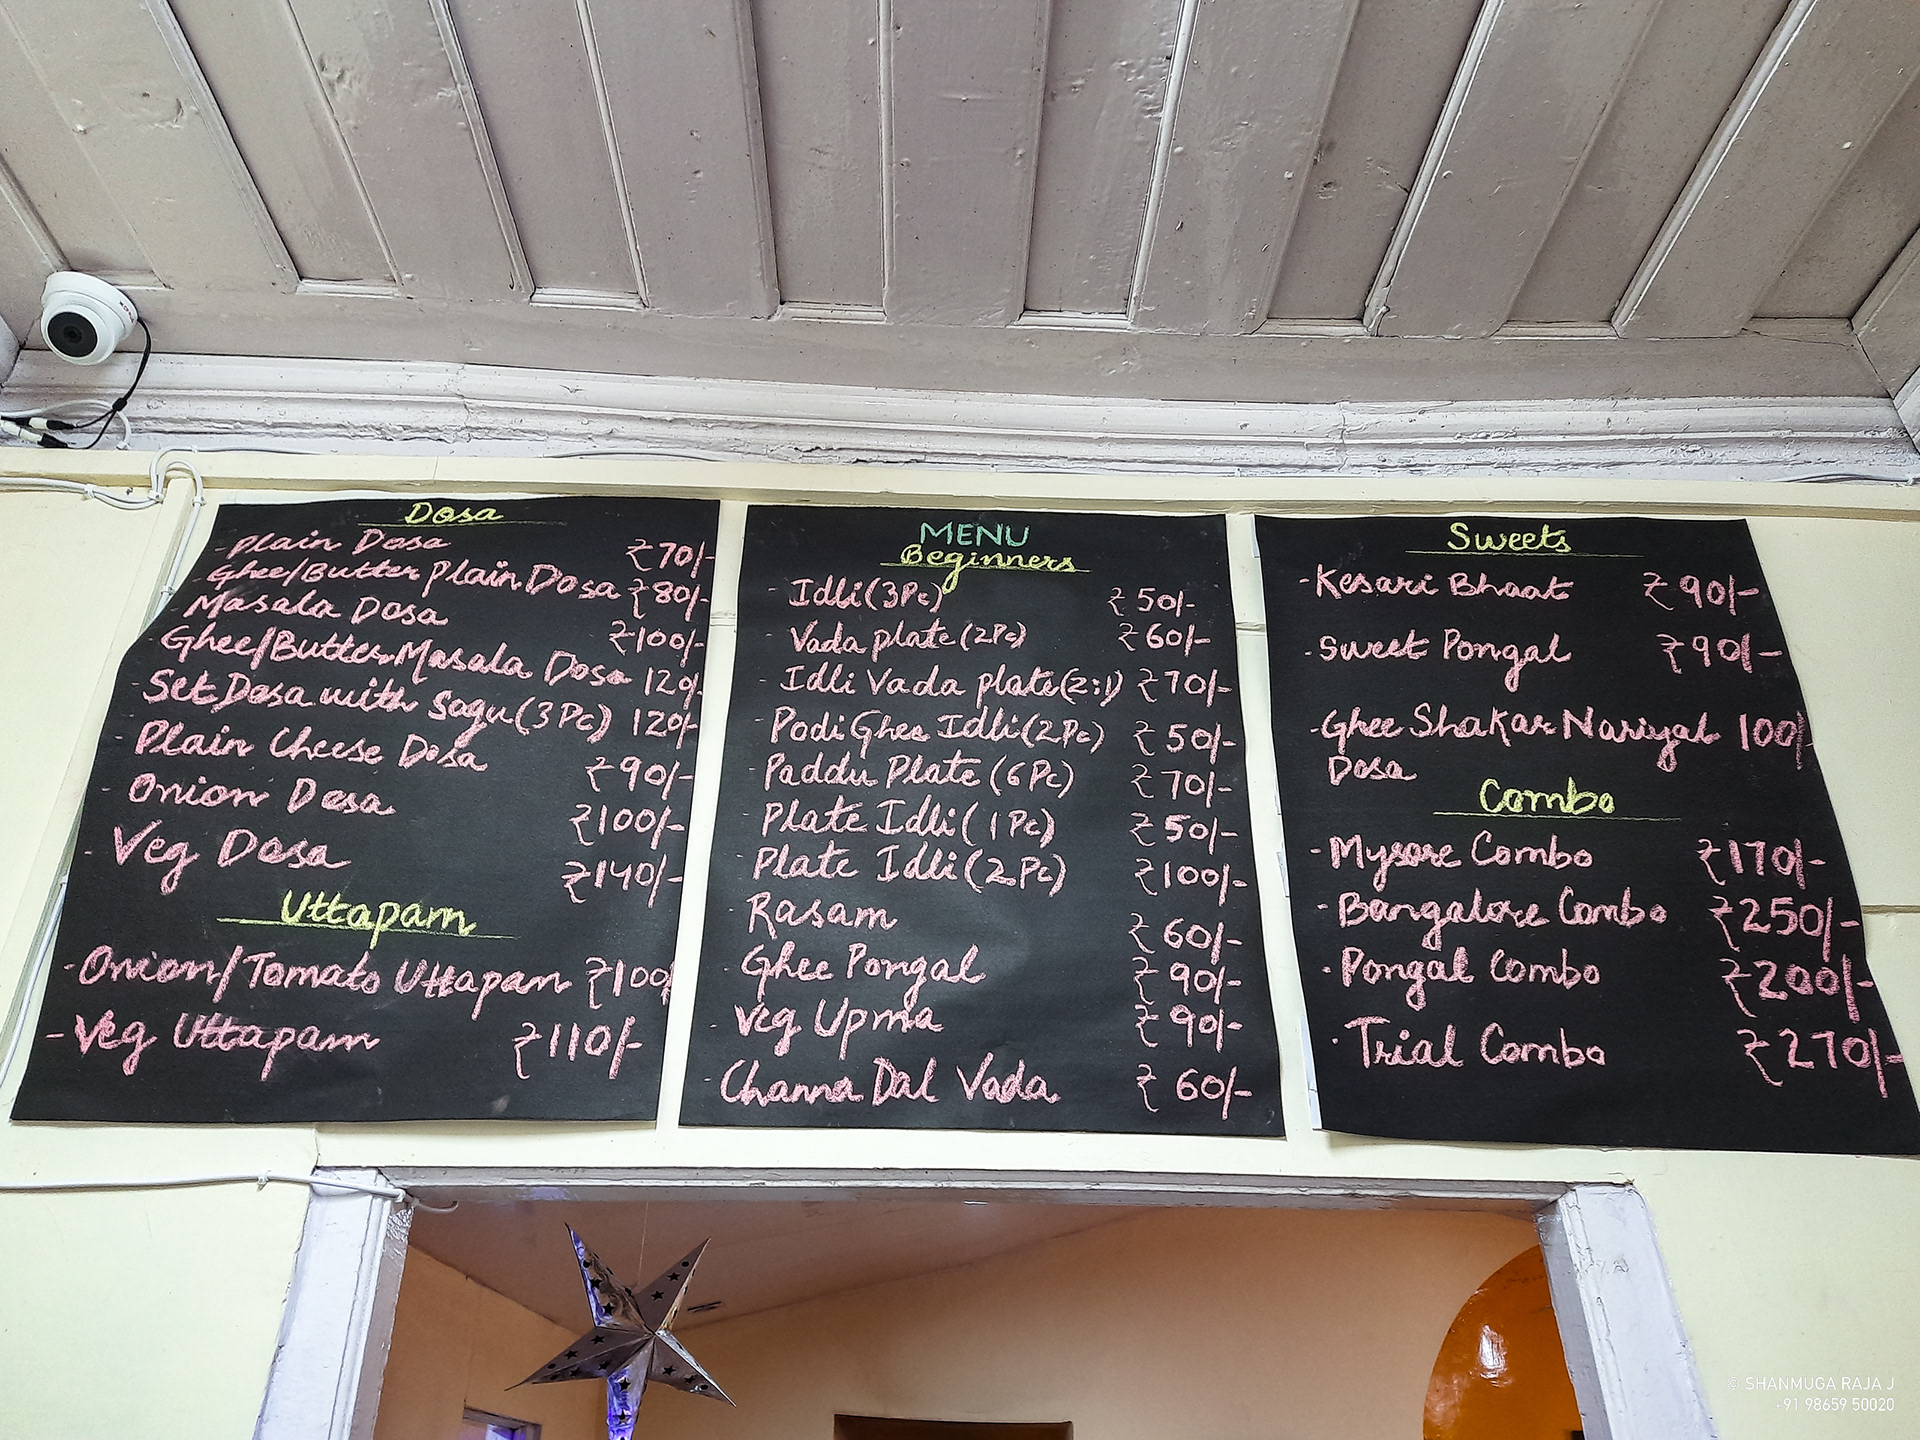 Dosa
- Plain Dosa ₹70/-
- Ghee/Butter Plain Dosa ₹80/-
- Masala Dosa ₹100/-
- Ghee/Butter Masala Dosa 120/-
- Set Dosa with Sagu (3 Pc) 120/-
- Plain Cheese Dosa ₹90/-
- Onion Dosa ₹100/-
- Veg Dosa ₹140/-
Uttapam
- Onion/Tomato Uttapam ₹100/
- Veg Uttapam ₹110/-
MENU
Beginners
- Idli (3Pc) ₹50/-
- Vada plate (2Pc) ₹60/-
- Idli Vada plate (2:1) ₹70/-
- Podi Ghee Idli (2Pc) ₹50/-
- Paddu Plate (6 Pc) ₹70/-
- Plate Idli (1Pc) ₹50/-
- Plate Idli (2Pc) ₹100/-
- Rasam ₹60/-
- Ghee Pongal ₹90/-
- Veg Upma ₹90/-
- Channa Dal Vada ₹60/-
Sweets
- Kesari Bhaat ₹90/-
- Sweet Pongal ₹90/-
- Ghee Shakar Nariyal 100/
Dosa
Combo
- Mysore Combo ₹170/-
- Bangalore Combo ₹250/-
- Pongal Combo ₹200/-
- Trial Combo ₹270/-
© SHANMUGA RAJA J
+91 98659 50020